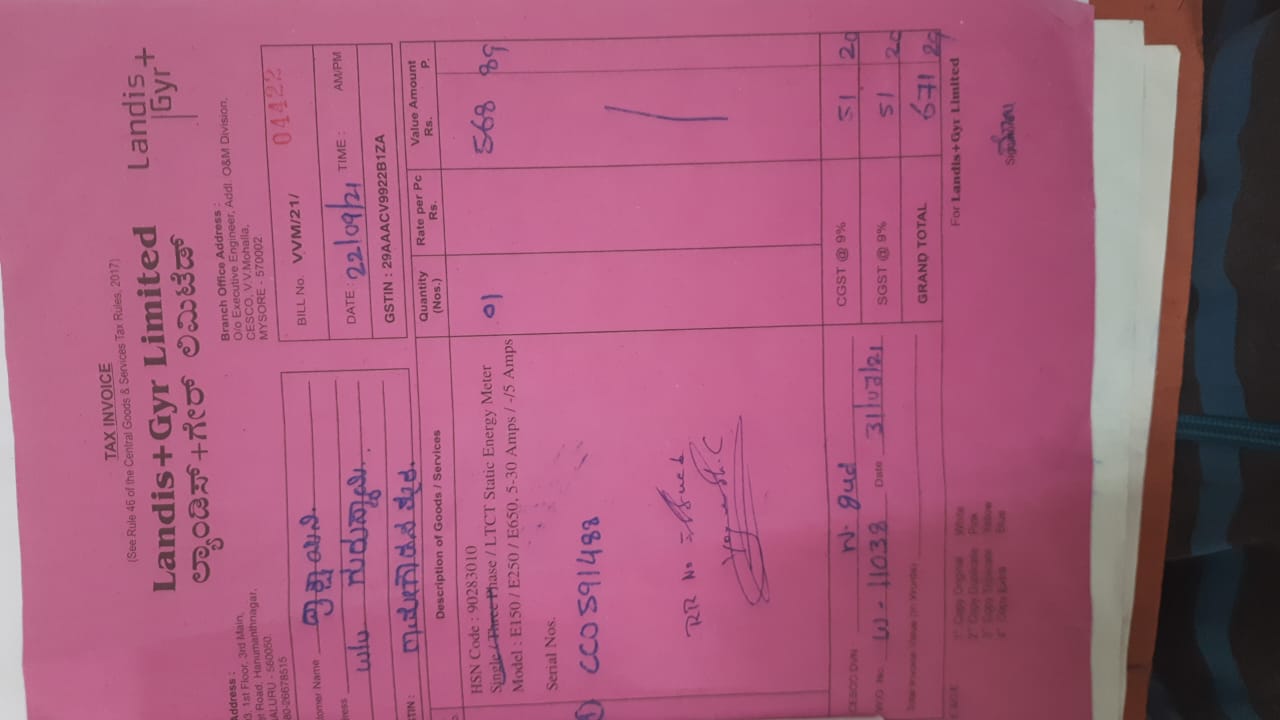 TAX INVOICE
(See Rule 46 of the Central Goods & Services Tax Rules, 2017)
Landis+Gyr Limited
ಲ್ಯಾಂಡಿಸ್+ಗೇರ್ ಲಿಮಿಟೆಡ್
Landis Gyr+
Address :
1st Floor, 3rd Main,
Road, Hanumanthnagar,
560050.
80-26678515
Branch Office Address :
O/o Executive Engineer, Addl. O&M Division,
CESCO, V.V.Mohalla,
MYSORE - 570002
BILL No. VVM/21/ 04422
DATE : 22/09/21 TIME : AM/PM
GSTIN : 29AAACV9922B1ZA
Customer Name
Description of Goods / Services Quantity (Nos.) Rate per Pc Rs. Value Amount Rs. P.
HSN Code : 90283010
Single / Three Phase / LTCT Static Energy Meter 01 568 89
Model : E150 / E250 / E650, 5-30 Amps / -/5 Amps
Serial Nos.
1) CC0591488
RR No
CESCO DVN CGST @ 9% 51 20
W.O No. W-11038 Date 31/07/21 SGST @ 9% 51 20
Total Invoice Value (In Words) GRAND TOTAL 671 29
For Landis+Gyr Limited
1st Copy Original White
2nd Copy Duplicate Pink
3rd Copy Triplicate Yellow
4th Copy Extra Blue